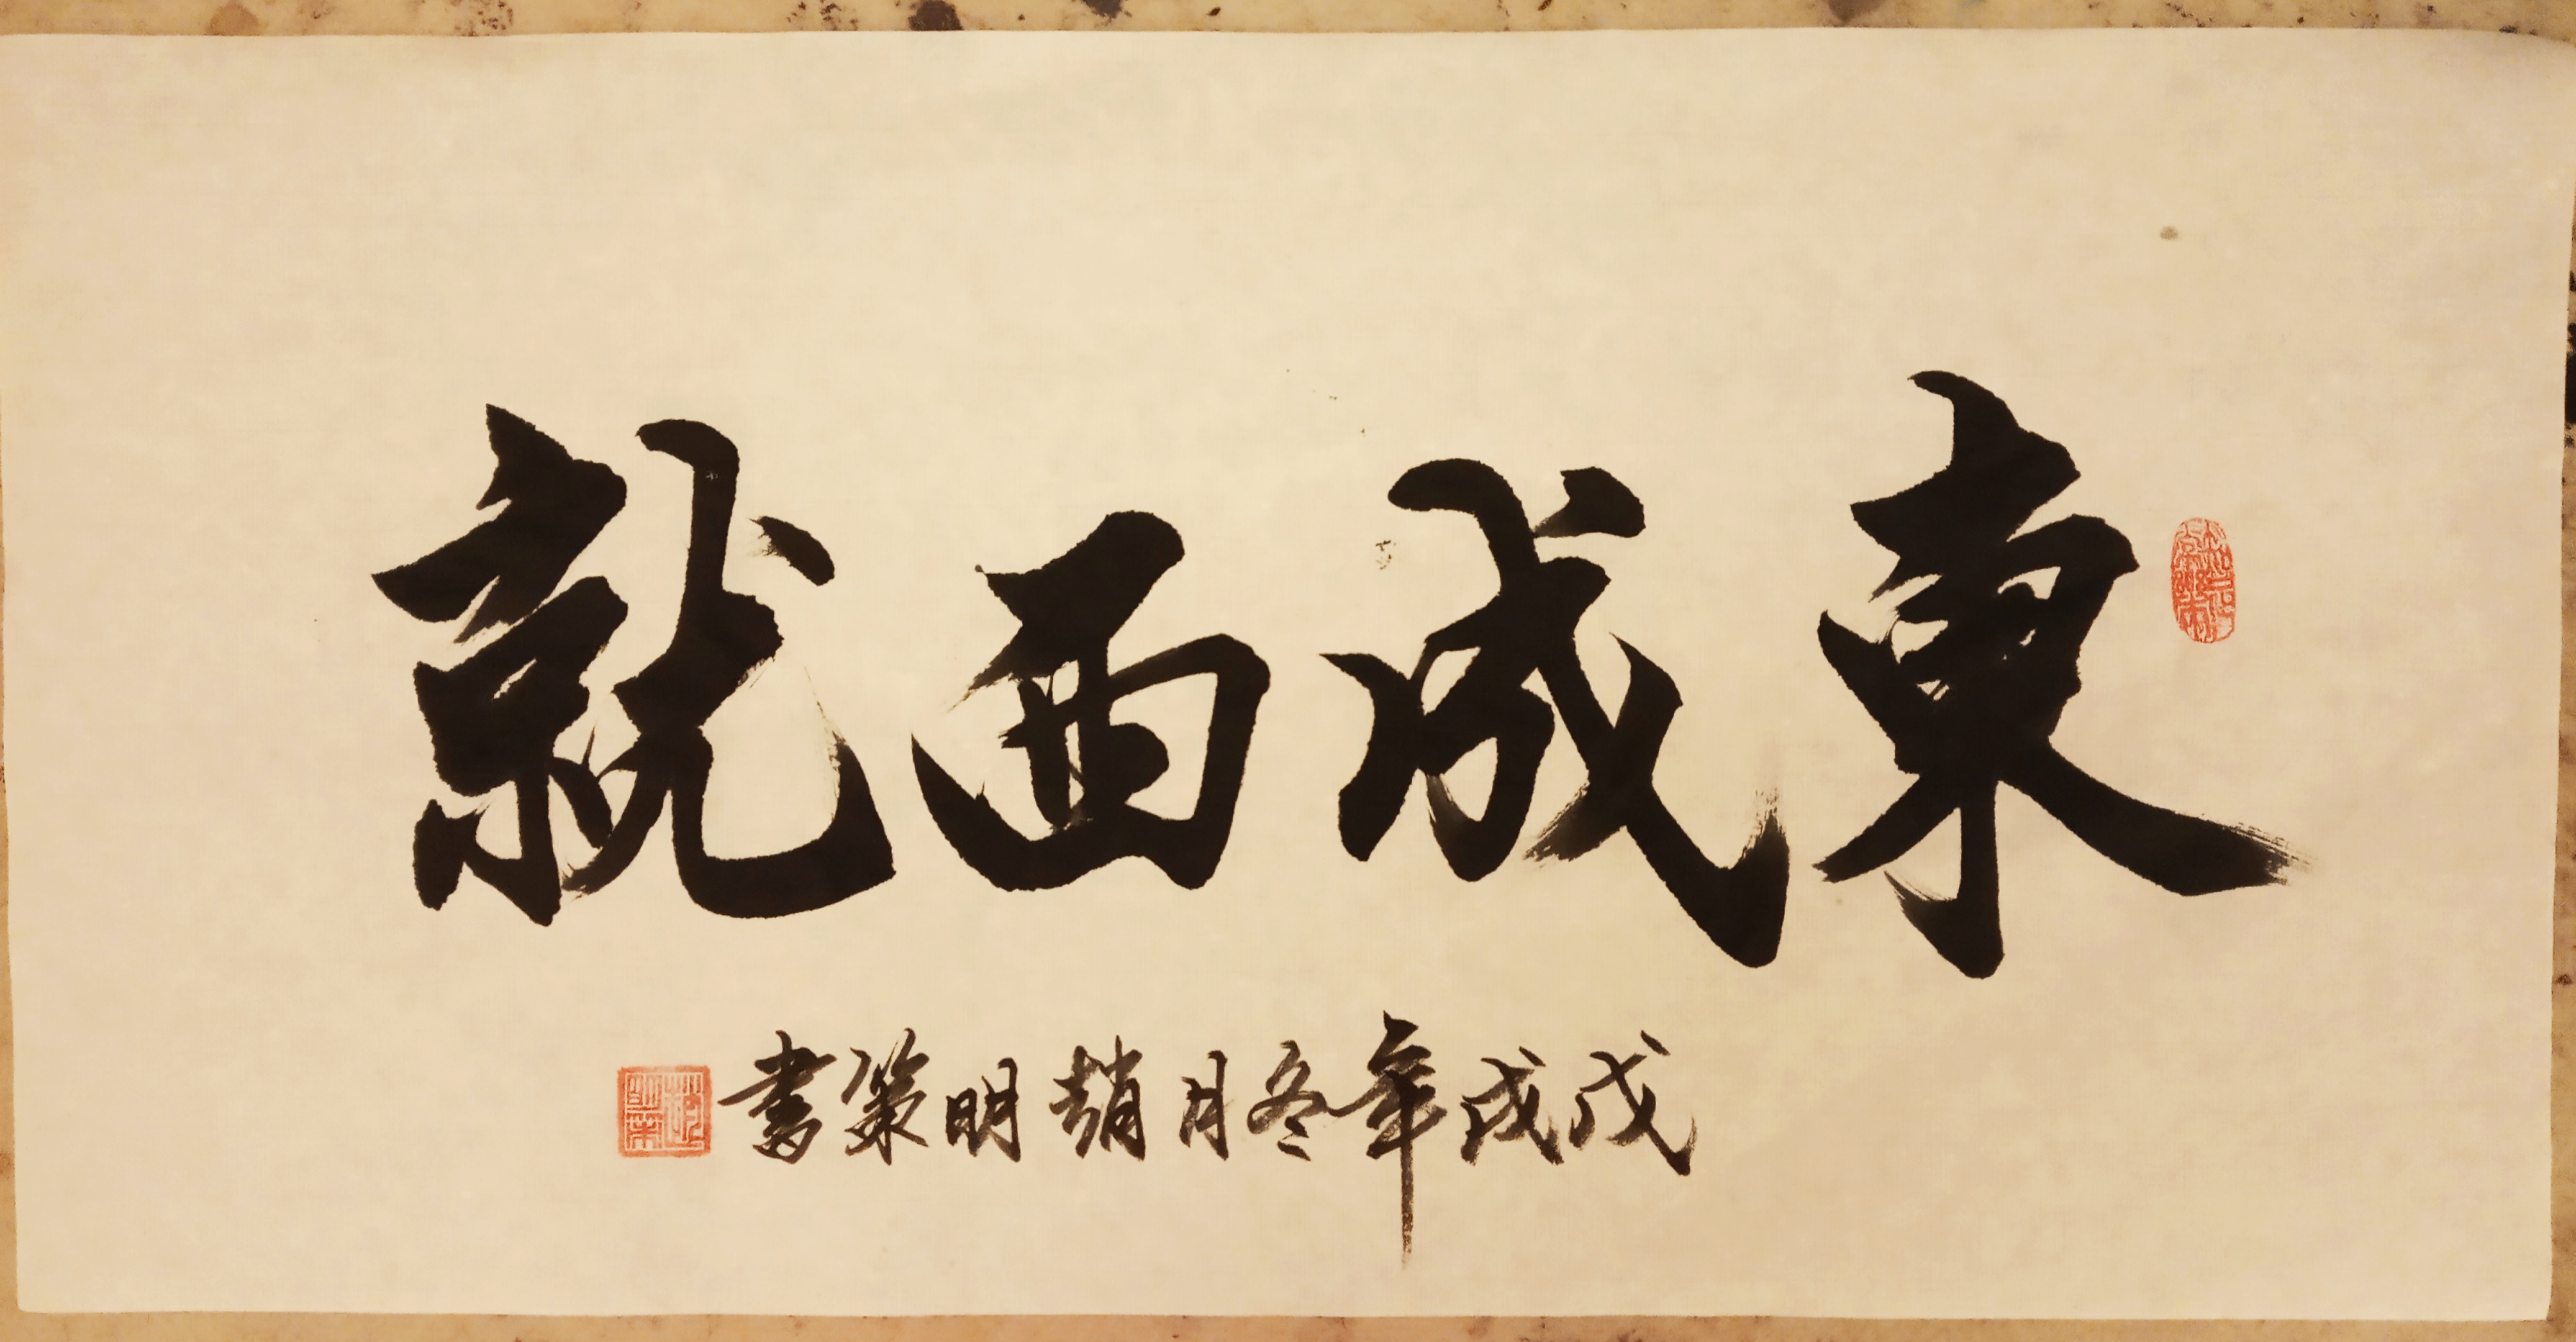 東成西就
戊戌年冬月趙明策書
趙明策